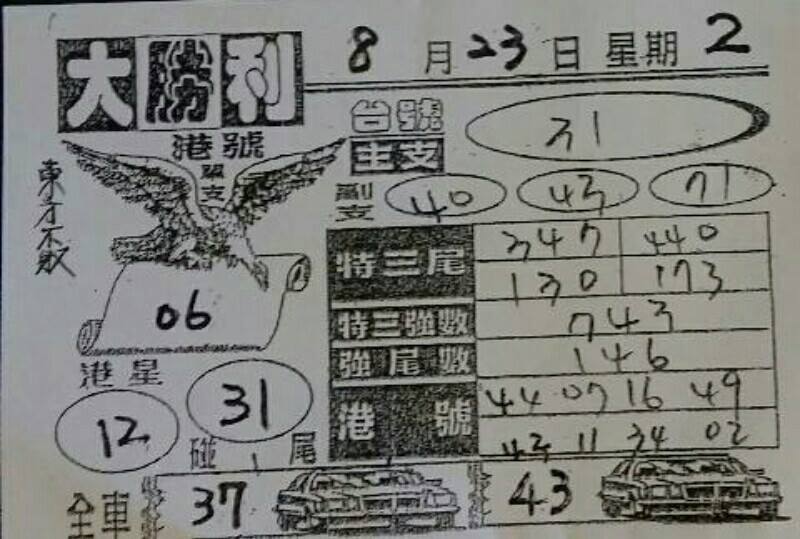 8月23日 星期2
大勝利
台號
主支
31
港號
單支
副支
40 43 71
東方不敗
特三尾
347 440
130 173
06
特三強數
743
強尾數
146
港星
12
31
港號
44 07 16 49
43 11 34 02
碰 尾
全車
37
43